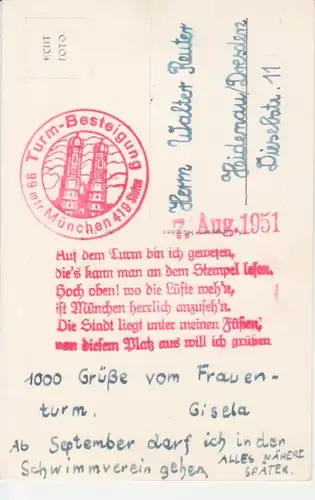 ECHT
FOTO
Herrn Walter Reuter
Heidenau/Dresden
Dieselstr. 11
Turm-Besteigung
99 mtr München 419 Stufen
7. Aug. 1951
Auf dem Turm bin ich gewesen,
die's kann man an dem Stempel lesen.
Hoch oben! wo die Lüfte weh'n,
ist München herrlich anzuseh'n.
Die Stadt liegt unter meinen Füßen,
von diesem Platz aus will ich grüßen
1000 Grüße vom Frauen-
turm. Gisela
Ab September darf ich in den
Schwimmverein gehen. ALLES NÄHERE
SPÄTER.